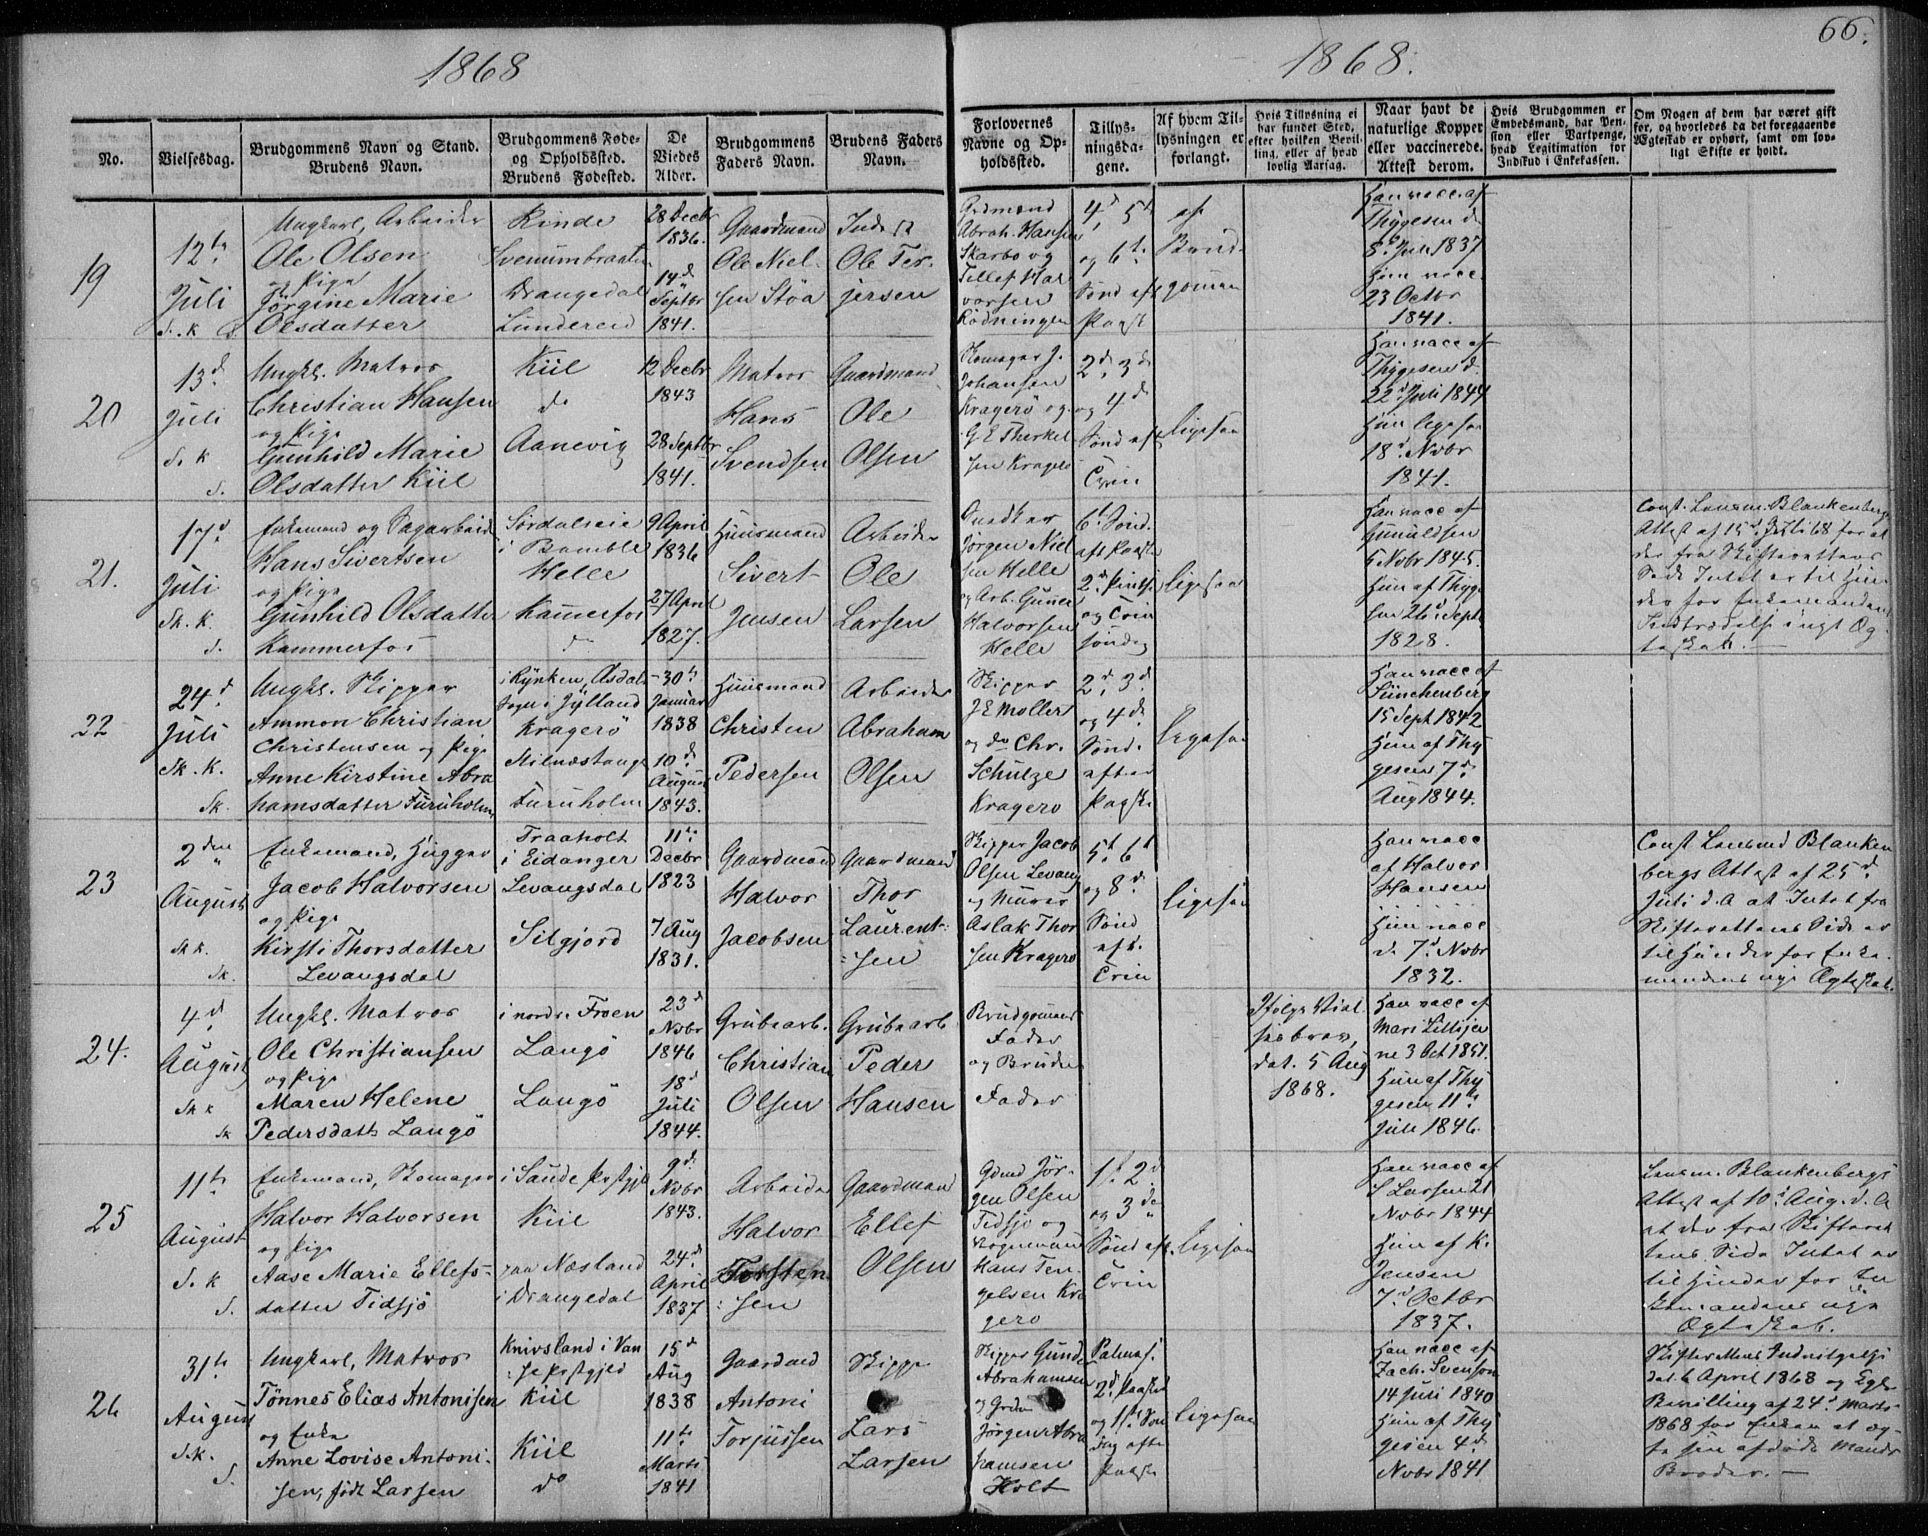 1868
1868.
66.
No.
Vielsesdag.
Brudgommens Navn og Stand.
Brudens Navn.
Brudgommens Føde-
og Opholdssted.
Brudens Fødested.
De
Viedes
Alder.
Brudgommens
Faders Navn.
Brudens Faders
Navn.
Forlovernes
Navne og Op-
holdssted.
Tillys-
ningsda-
gene.
Af hvem Til-
lysningen er
forlangt.
Hvis Tillysning ei
har fundet Sted,
efter hvilken Bevil-
ling, eller af hvad
lovlig Aarsag.
Naar havt de
naturlige Kopper
eller vaccinerede.
Attest derom.
Hvis Brudgommen er
Embedsmand, har Pen-
sion eller Vartpenge,
hvad Legitimation for
Indskud i Enkekassen.
Om Nogen af dem har været gift
før, og hvorledes da det foregaaende
Ægteskab er ophørt, samt om lov-
ligt Skifte er holdt.
19
12te
Juli
Ungkarl, Arbeider
Ole Olsen
og Pige
Jörgine Marie
Olsdatter
Rinde
Svenumbraaten
Drangedal
Lundereid
28 Decbr
1836.
14d
Septbr
1841.
Gaardmand
Ole Niel-
sen Stöa
Ole Ter-
jersen
Grdmænd
Abrah. Hansen
Skarbo og
Tellef Hal
vorsen
Rödningen
4d, 5te
og 6te
Sönd eft
Paaske
af
Brud-
gommen
Han vacc. af
Thygesen d
8d Juli 1837
Hun vacc.
23 Octbr
1841.
20
13d
Juli
S. k
S.
Ungkl. Matros
Christian Hansen
og Pige
Gunhild Marie
Olsdatter Kiil
Kiil
do
Aanevig
12 Decbr
1843
28 Septbr
1841.
Matros
Hans
Svendsen
Gaardmand
Ole
Olsen
Skomager J.
Johansen
Kragerö og
G E Therkel
sen Kragerö
2d, 3d
og 4d
Sönd eft
Trin
ligesaa
Han vacc af
Thygesen d.
22d Juli 1844
Hun ligesaa
18d Novbr
1841.
21.
17d
Juli
Sk. K.
S.
Enkemand og Sagarbeid
Hans Sivertsen
og Pige
Gunhild Olsdatter
Kammerfos
Sördalseie
i Bamble
Helle
Kamerfos
9 April
1836
27 April
1827.
Huusmand
Sivert
Jensen
Arbeider
Ole
Larsen
Jörgen Niel
sen Helle
og Arb. Gunder
Halvorsen
Helle
6te Sönd.
eft Paaske
2d Pintse
og Trin
söndag
ligesaa
Han vacc af
Gunuldsen
5 Novbr 1845.
Hun af Thyge
sen 26d Sept
1828.
Const. Lensm. Blankenbergs
Attest af 15d Juli 68 for at
der fra Skifterettens
Side Intet er til Hin-
der for Enkemandens
Indtrædelse i nyt Æg-
teskab. —
22
24d
Juli
Sk. K.
Sk.
Ungkl. Skipper
Ammon Christian
Christensen og Pige
Anne Kirstine Abra
hamsdatter Furuholm
i Rynken, Asdals
Sogn i Jylland
Kragerö
Furuholm
30te
Januar
1838
10d
August
1843.
Huusmand
Christen
Pedersen
Arbeider
Abraham
Olsen
Skipper
J E Moller
og do Chr.
Schulze
Kragero
2d, 3d
og 4d
Sönd.
efter
Paaske
ligesaa
Han vacc af
Sünchenberg
15 Sept 1842
Hun af Thy
gesen 7d
Aug 1844.
23
2den
August
Sk k.
Sk.
Enkemand, Hugger
Jacob Halvorsen
og Pige
Kirsti Thorsdatter
Levangsdal
Traaholt
i Eidanger
Levangsdal
Silgjord
11te
Decbr
1823
7 Aug
1831.
Gaardmand
Halvor
Jacobsen
Gaardmand
Thor
Laurent-
sen
Skipper Jacob
Olsen Levang
og Murer
Aslak Thor
sen Kragerö
5te, 6te
og 8d
Sönd
eft.
Trin
ligesaa
Han vacc
af Halvor
Hansen
Hun vacc
d. 7d Novbr
1832.
Const Lensmd Blanken
bergs Attest af 25d
Juli d. A at Intet fra
Skifterettens Side er
til Hinder for Enke-
mandens nye Ægteskab.
24.
4d
August
Sk k
Sk
Ungkl. Matros
Ole Christiansen
og Pige
Maren Helene
Pedersdatt Langö
i nordre Froen
Langö
Langö
23d
Novbr
1846
18d
Juli
1844.
Grubearb.
Christian
Olsen
Grubearb
Peder
Hansen
Brudgommens
Fader
og Brudens
Fader
Ifölge Viel-
sesbrev,
dat. 5 Aug
1868.
Han vacc af
Mari Lillijer
ne 3 Oct 1851.
Hun af Thy
gesen 11te
Juli 1846.
25
11te
August
S. k
S.
Enkemand, Skomager
Halvor Halvorsen
og Pige
Aase Marie Ellefs-
datter Tidsjö
i Saude Prstgjl
Kiil
paa Næsland
i Drangedal
9d
Novbr
1843.
24d
April
1837
Arbeider
Halvor
Torsten
sen
Gaardmand
Ellef
Olsen
Grdmd Jör-
gen Olsen
Tidsjö og
Hans Ten-
gelsen Kra
gerö
1te 2d
og 3de
Sönd eft.
Trin
ligesaa
Han vacc af
S Larsen 21
Novbr 1844
Hun af K.
Jensen
7d Octbr
1837.
Lensm. Blankenbergs
Attest af 10d Aug. d. A
at der fra Skifteret
tens Side Intet er
til Hinder for En
kemandens nye
Ægteskab.
26
31te
August
S.k.
S.
Ungkarl, Matros
Tönnes Elias Antonisen
og Enke
Anne Lovise Antoni-
sen, födt Larsen
Knivsland i Van
se Prstgjeld
Kiil
Kiil
do
15d
Aug
1838
11te
Marts
1841
Gaardmd
Antoni
Torjussen
Skipper
Lars
Larsen
Skipper Gunder
Abrahamsen
og Grdm
Jörgen Abra
hamsen
Holt
Palmes.
2d Paaske
og 1te Sön
dag efter
Paaske
ligesaa
Han vacc af
Zach. Svenson
14 Juli 1840
Hun af Thy
gesen 4d
Novbr 1841
dat. 6 April 1868 og Kgl.
Bevilling af 24d Marts
1868 for Enken at æg-
te sin afdöde Mands
Broder. —